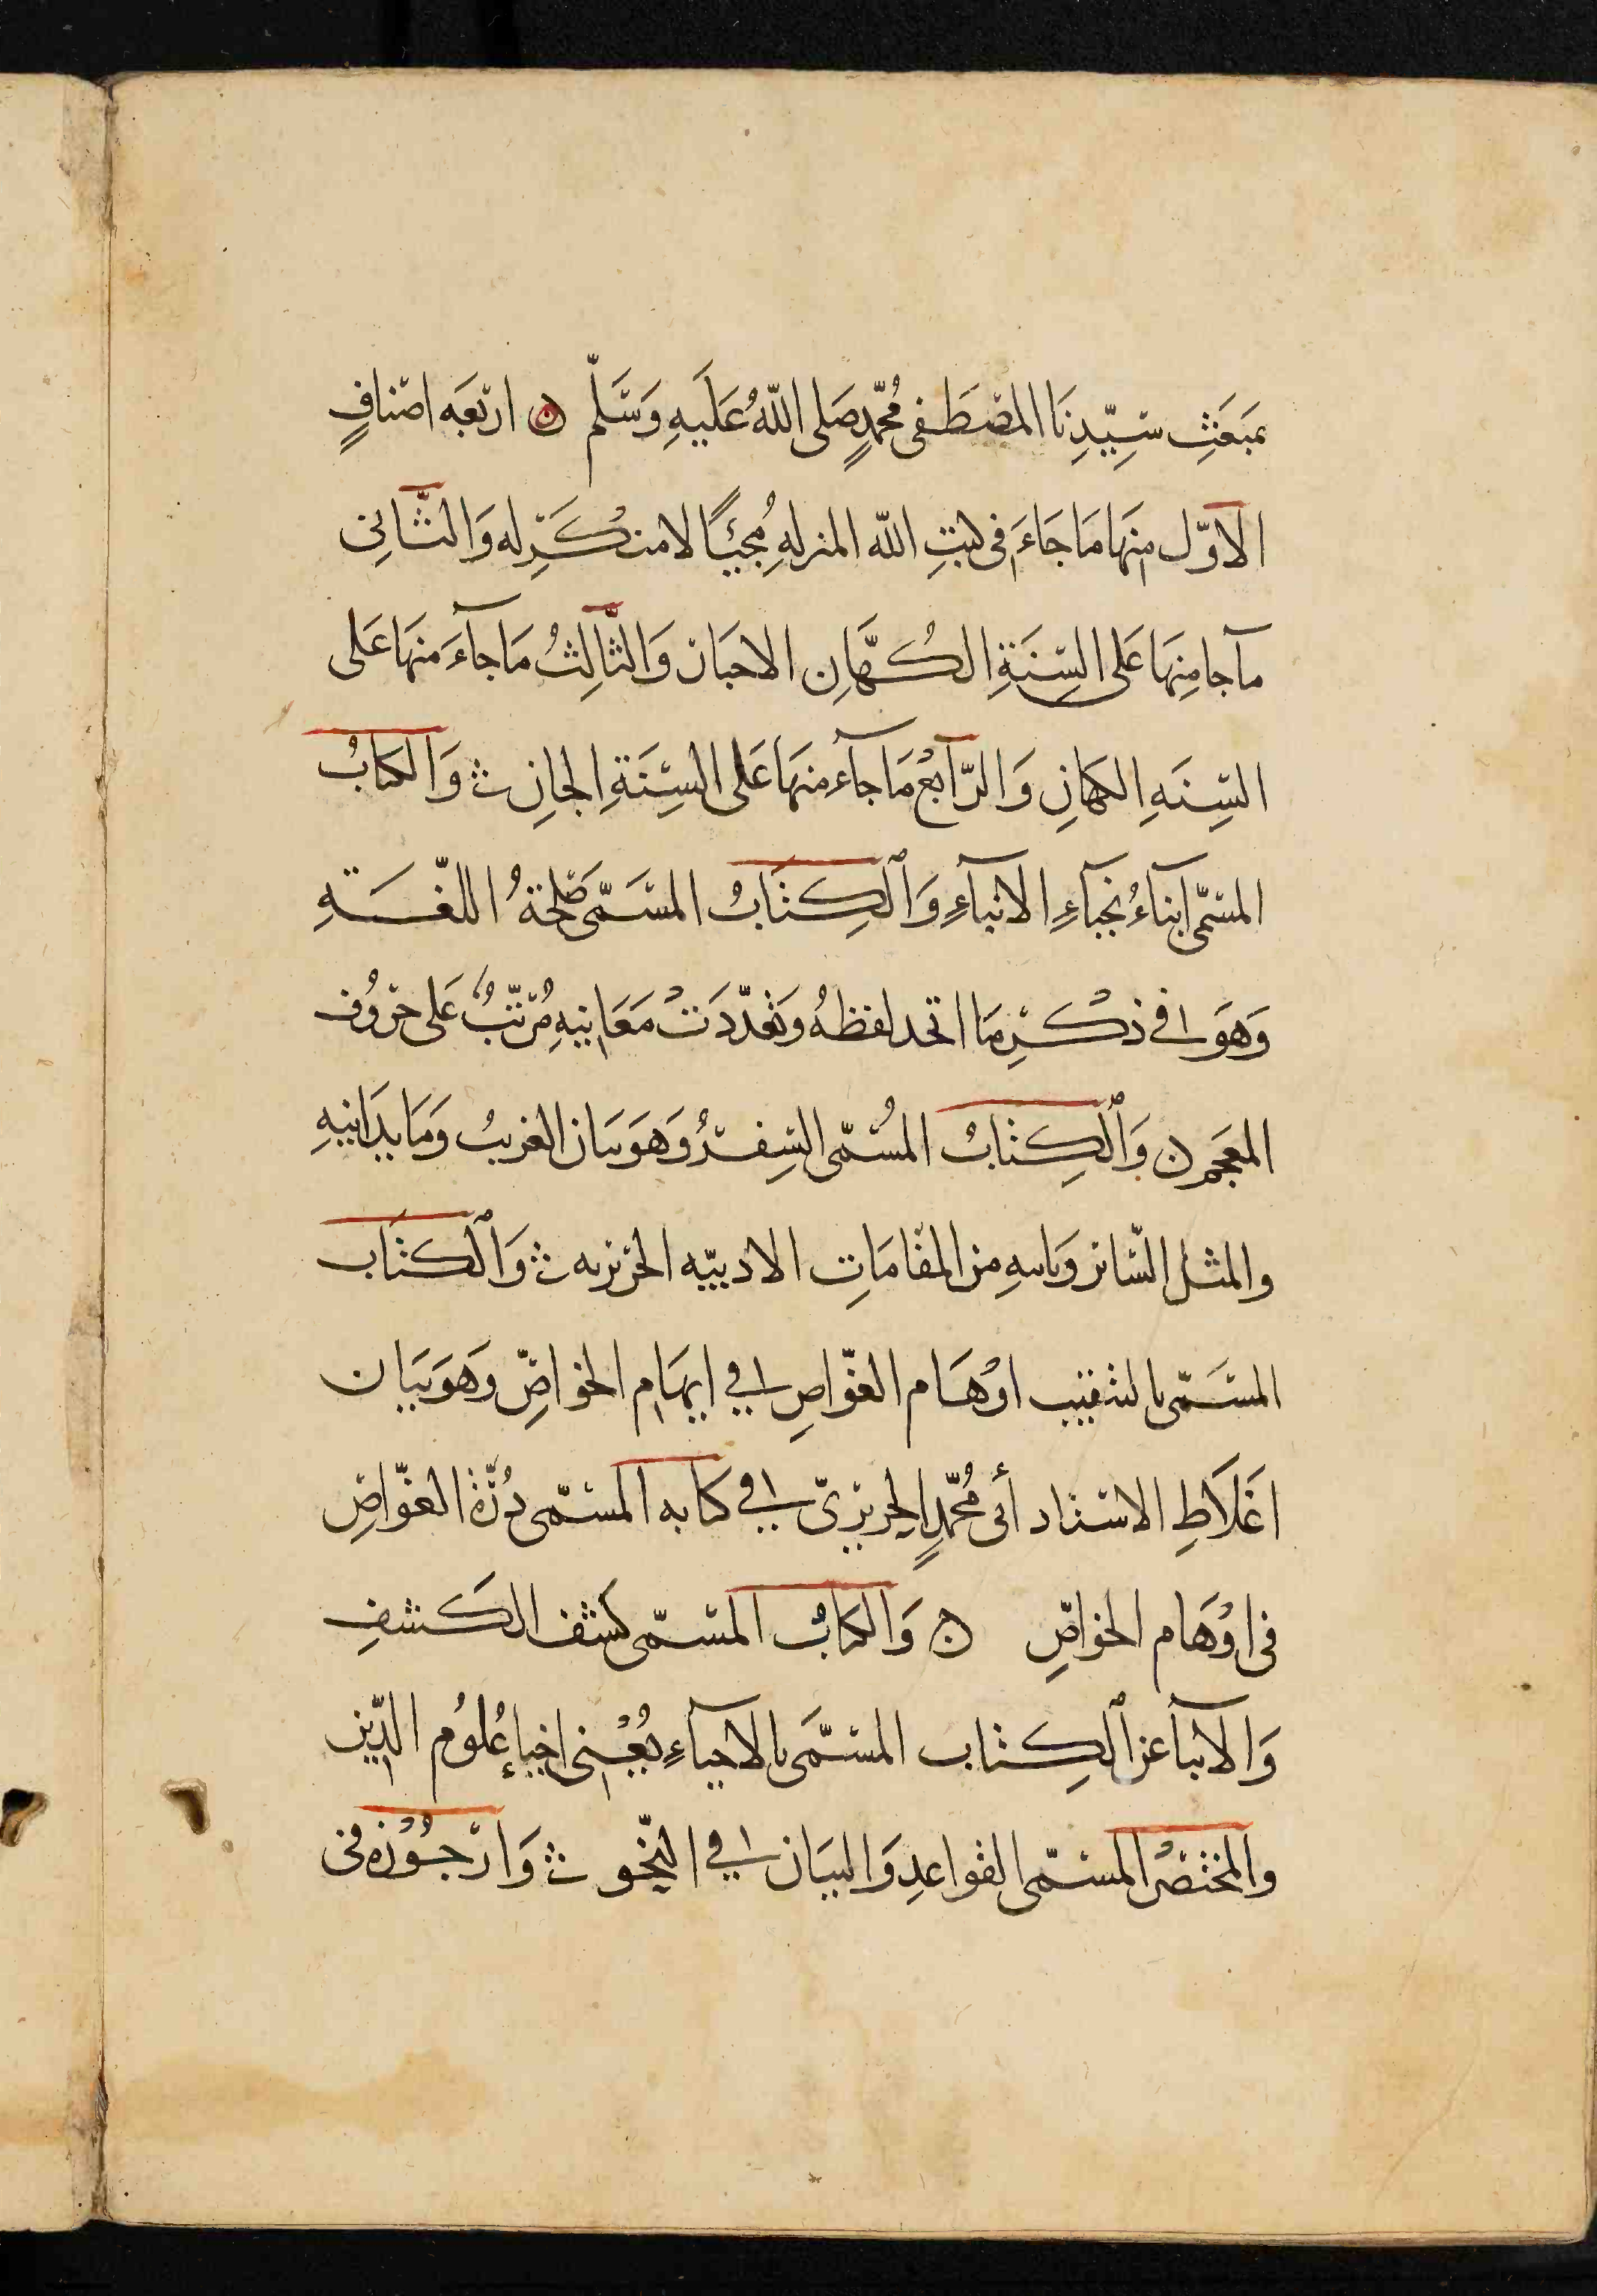 بمَبعَثِ سَيِّدِنَا المصْطَفى مُحمّدٍ صَلى اللّهُ عَلَيهِ وَسَلّم ن اربعَه اصنافٍ
الاوّل منهَا مَا جَاءَ فى كتبِ الله المنزلهِ مُجيئًا لا منكَرِ له وَالثّانِى
مآ جا منِهَا عَلى السِنَةِ الكُهَّانِ الاحبار وَالثّالِثُ مَا جآءَ منهَا عَلى
السِنَهِ الكهَانِ وَالرّابعُ مَا جآء منهَا عَلى السِنَةِ الجانِ ث وَالكتابُ
المسَمّى ابناءُ نجبآءِ الانبآءِ وَالكِتَابُ المسَمّى مُلحَةُ اللغَـةِ
وَهوَ فى ذكْرِ مَا اتحد لفظهُ وَتعَدّدَتْ مَعَانيهِ مُرَتّبٌ عَلى حروُف
المعَجم ن وَالكِتَابُ المُسَمّى السِفرُ وَهوَ بيَان الغريبُ وَمَا يدَانيهِ
والمثل السّائر وَبابهِ من المقَامَاتِ الادبيّه الحريريه ث وَالكتَاب
المسَمّى بالتنقيب اوْهَام الغوّاصِ فى ايهَام الخواصِّ وَهوَ بيَان
اغَلاَطِ الاستاد أبى مُحمّدٍ الحريرىّ فى كتابه المسَمّى دُرّة الغوّاصِ
فى اوْهَام الخواصِّ ن وَالكتابُ المسَمّى كشف الكَشفِ
وَالانبآ عن الكِتَاب المسَمَّى بالاحيآءِ يُعْنى احياءِ عُلوُم الدّين
والمختصْر المسَمّى القواعدِ وَالبيَان فى النّحو ث وَارجُوْزه فى